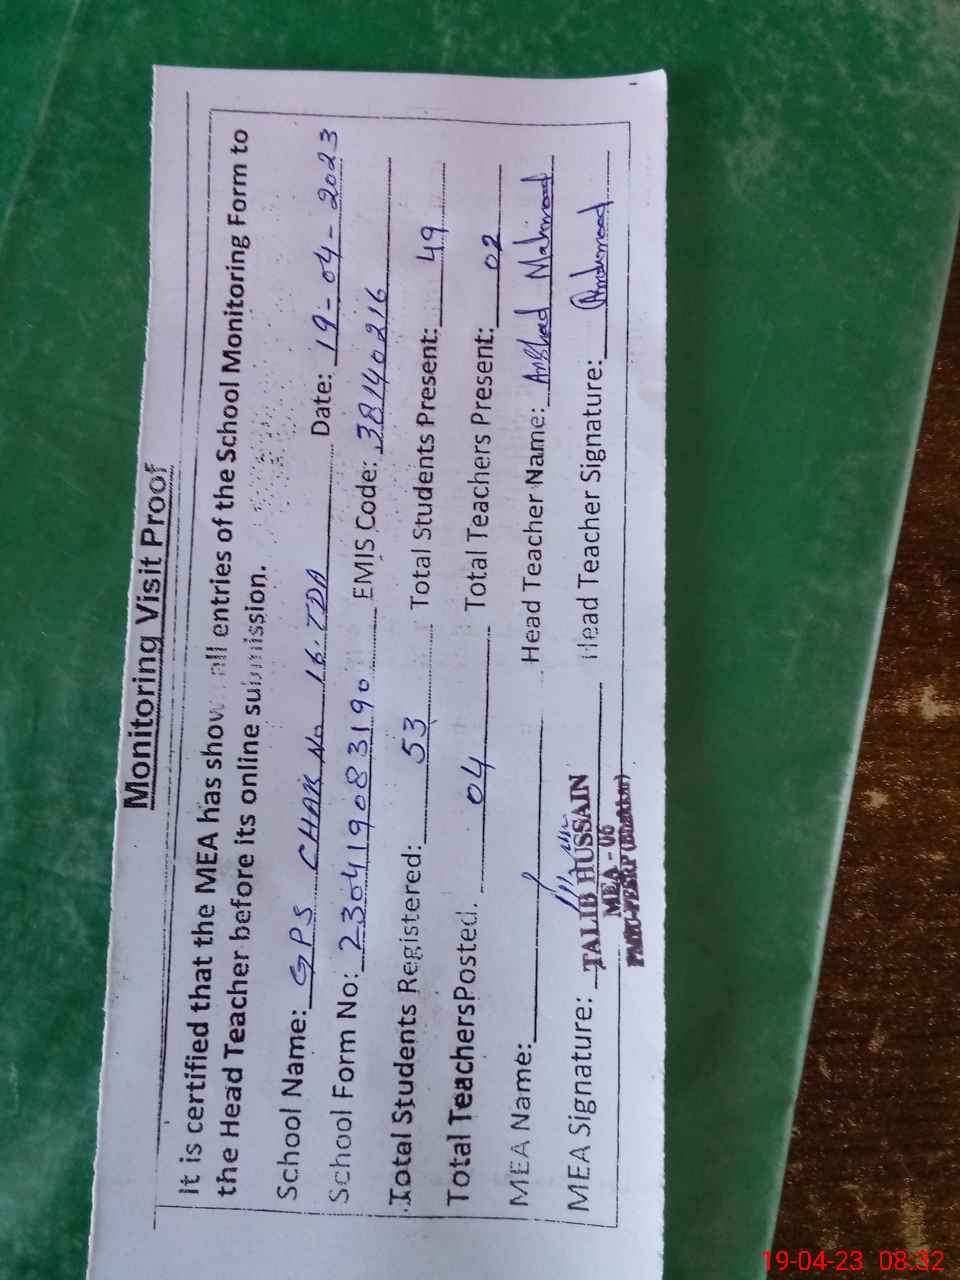 Monitoring Visit Proof
It is certified that the MEA has shown all entries of the School Monitoring Form to
the Head Teacher before its online submission.
School Name: GPS CHAK No 16.TDA Date: 19-04-2023
School Form No: 230419083190 EMIS Code: 38140216
Total Students Registered: 53 Total Students Present: 49
Total Teachers Posted. 04 Total Teachers Present: 02
MEA Name: Head Teacher Name: Arshad Mahmood
MEA Signature: Head Teacher Signature:
TALIB HUSSAIN
MEA - 06
PMIU-PESRP (Bhakkar)
19-04-23 08:32